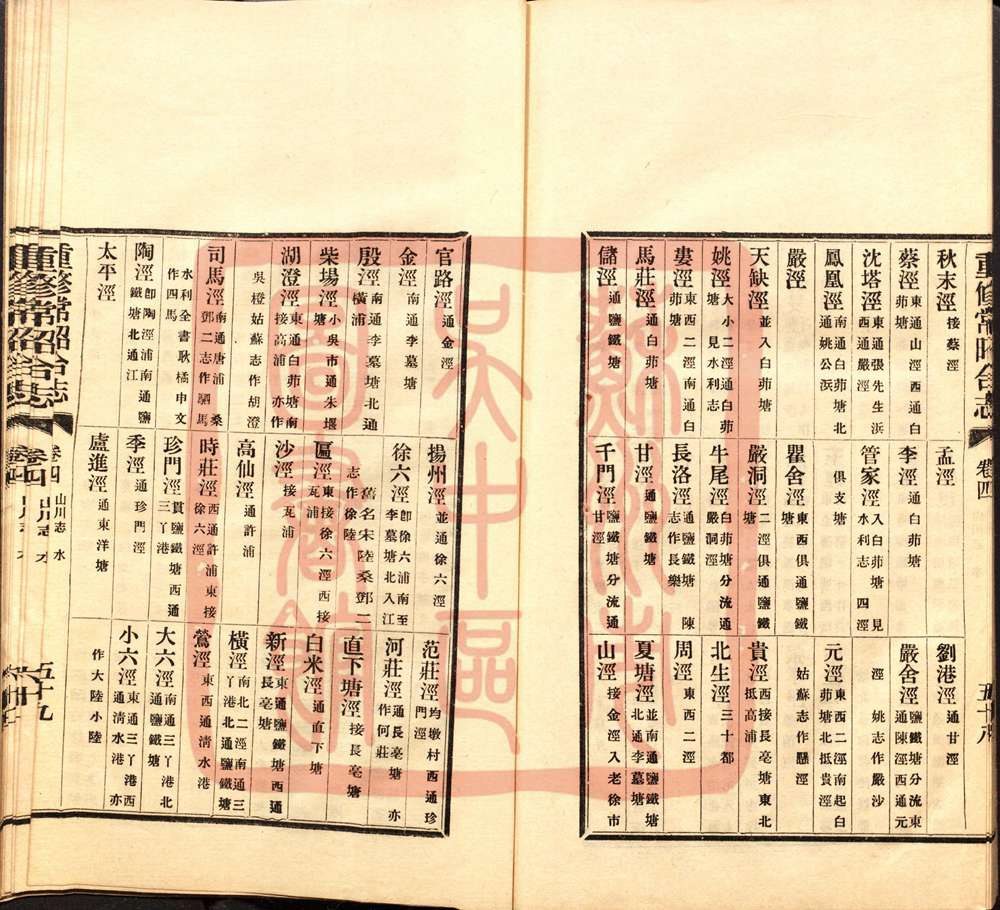 重修常昭合志 卷四 五十八
秋末涇 接蔡涇 孟涇 劉港涇 通甘涇
蔡涇 東通山涇西通白茆塘 李涇 通白茆塘 嚴舍涇 鹽鐵塘分流東通陳涇西通元
沈塔涇 東通張先生浜西通嚴涇 管家涇 入白茆塘見水利志 四涇 涇 姚志作嚴沙
鳳凰涇 南通白茆塘北通姚公浜 俱支塘 元涇 東西二涇南起白茆塘北抵貴涇
嚴涇 瞿舍涇 東西俱通鹽鐵塘 姑蘇志作懸涇
天缺涇 並入白茆塘 嚴洞涇 二涇俱通鹽鐵塘 貴涇 西接長亳塘東北抵高浦
姚涇 大小二涇通白茆塘見水利志 牛尾涇 白茆塘分流通嚴洞涇 北生涇 三十都
婁涇 東西二涇南通白茆塘 長洛涇 通鹽鐵塘 陳志作長樂 周涇 東西二涇
馬莊涇 通白茆塘 甘涇 通鹽鐵塘 夏塘涇 並南通鹽鐵塘北通李墓塘
儲涇 通鹽鐵塘 千門涇 鹽鐵塘分流通甘涇 山涇 接金涇入老徐市
官路涇 通金涇 揚州涇 並通徐六涇 范莊涇 均墩村西通珍門涇
金涇 南通李墓塘 徐六涇 卽徐六浦南至李墓塘北入江 河莊涇 通長亳塘 亦作何莊
殷涇 南通李墓塘北通橫浦 舊名宋陸桑鄧二志作徐陸 直下塘涇 接長亳塘
柴場涇 小吳市通朱堰塘 區涇 東接徐六涇西接瓦浦 白米涇 通直下塘
湖澄涇 東通白茆塘南接高浦 亦作 沙涇 接瓦浦 新涇 東通鹽鐵塘西通長亳塘
吳橙姑蘇志作胡澄 高仙涇 通許浦 橫涇 南北二涇南通三丫港北通鹽鐵塘
司馬涇 南通唐浦 桑鄧二志作駟馬 時莊涇 西通許浦東接徐六涇 鶯涇 東西通清水港
水利全書耿橘申文作四馬 珍門涇 貫鹽鐵塘西通三丫港 大六涇 南通三丫港北通鹽鐵塘
陶涇 卽陶涇浦南通鹽鐵塘北通江 季涇 通珍門涇 小六涇 東通三丫港西通清水港 亦
太平涇 盧進涇 通東洋塘 作大陸小陸
重修常昭合志 卷四 山川志 水 五十九